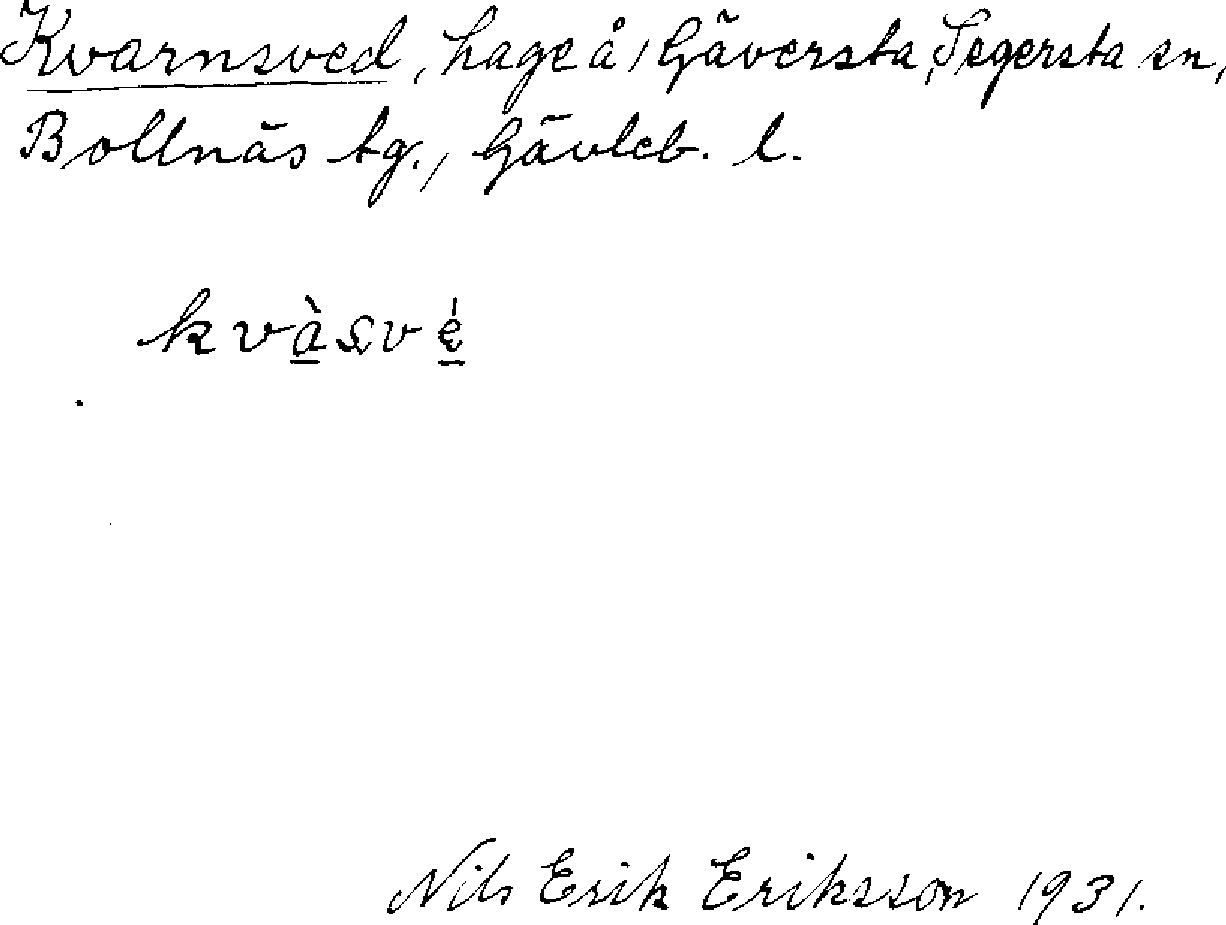 Kvarnsved, hage å, Gäversta, Segersta sn,
Bollnäs tg., Gävleb. l.
kvàsvé
Nils Erik Eriksson 1931.